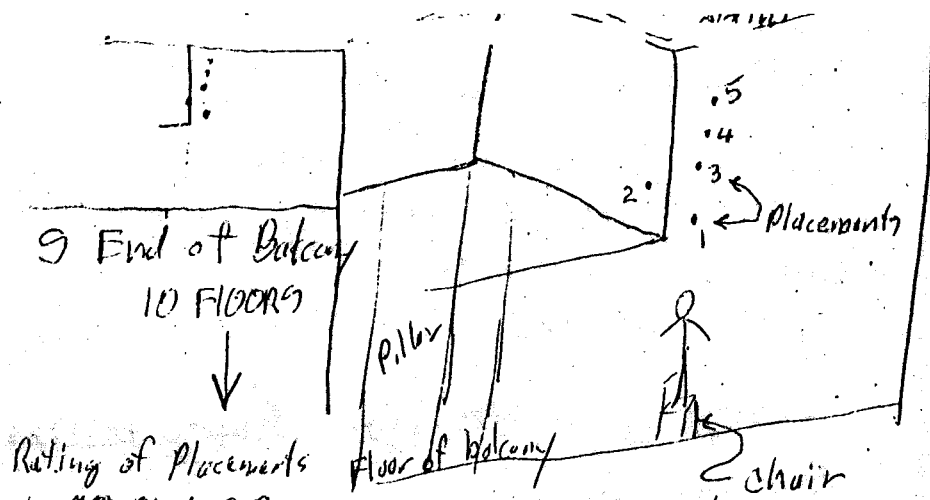 5
4
3
2
Placements
1
9 End of Balcony
10 FLOORS
Pillar
Rating of Placements
Floor of balcony
chair